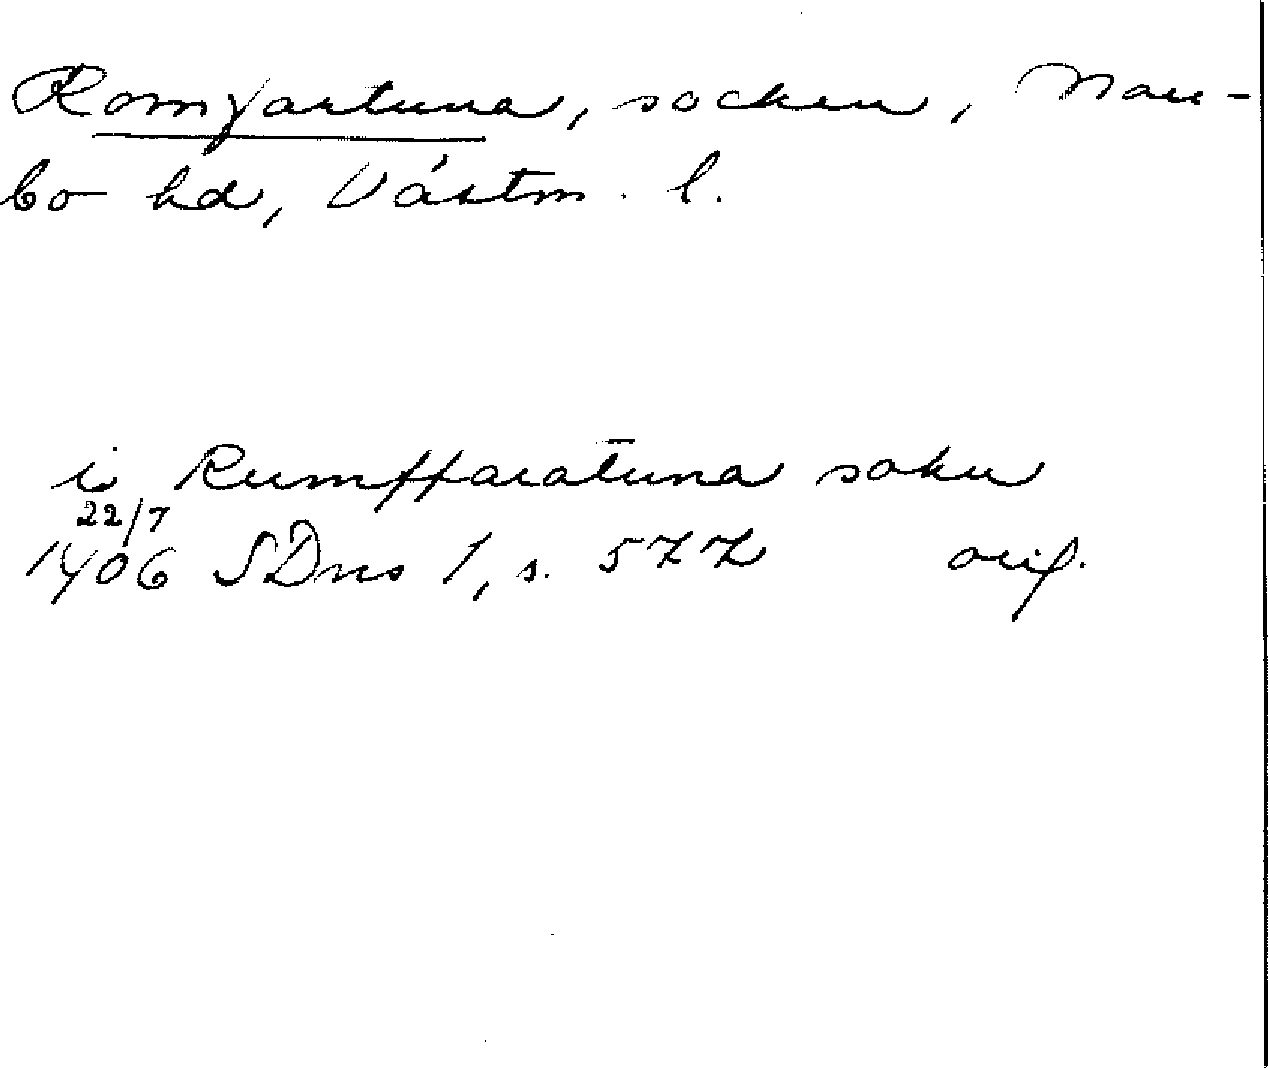 Romfartuna, socken, Norr-
bo hd, Västm. l.
i Rumffaratūna sokn
22/7
1406 SDns 1, s. 577 orig.